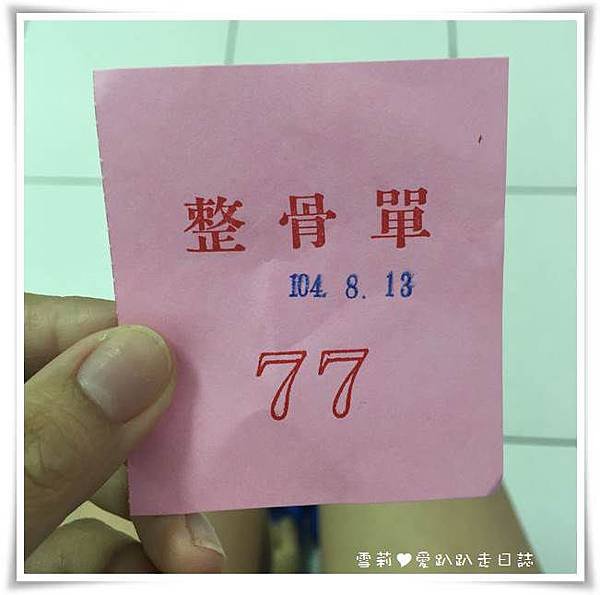 整骨單
104. 8. 13
77
雪莉♥愛趴趴走日誌